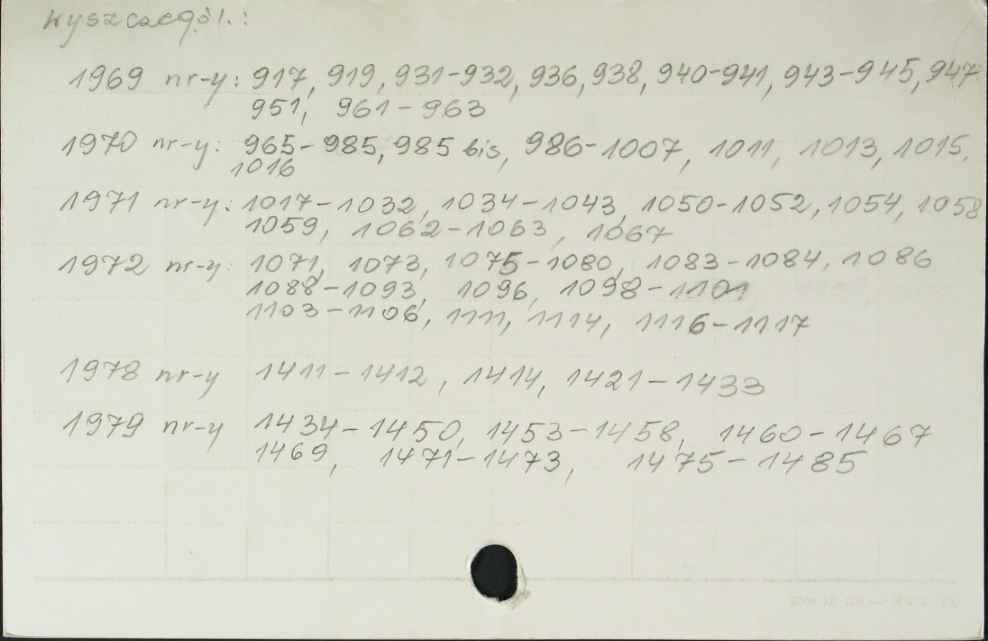 Wyszczegól.:
1969 nr-y: 917, 919, 931-932, 936, 938, 940-941, 943-945, 947
951, 961-963
1970 nr-y: 965-985, 985 bis, 986-1007, 1011, 1013, 1015,
1016
1971 nr-y: 1017-1032, 1034-1043, 1050-1052, 1054, 1058
1059, 1062-1063, 1067
1972 nr-y: 1071, 1073, 1075-1080, 1083-1084, 1086
1088-1093, 1096, 1098-1101
1103-1106, 1111, 1114, 1116-1117
1978 nr-y 1411-1412, 1414, 1421-1433
1979 nr-y 1434-1450, 1453-1458, 1460-1467
1469, 1471-1473, 1475-1485